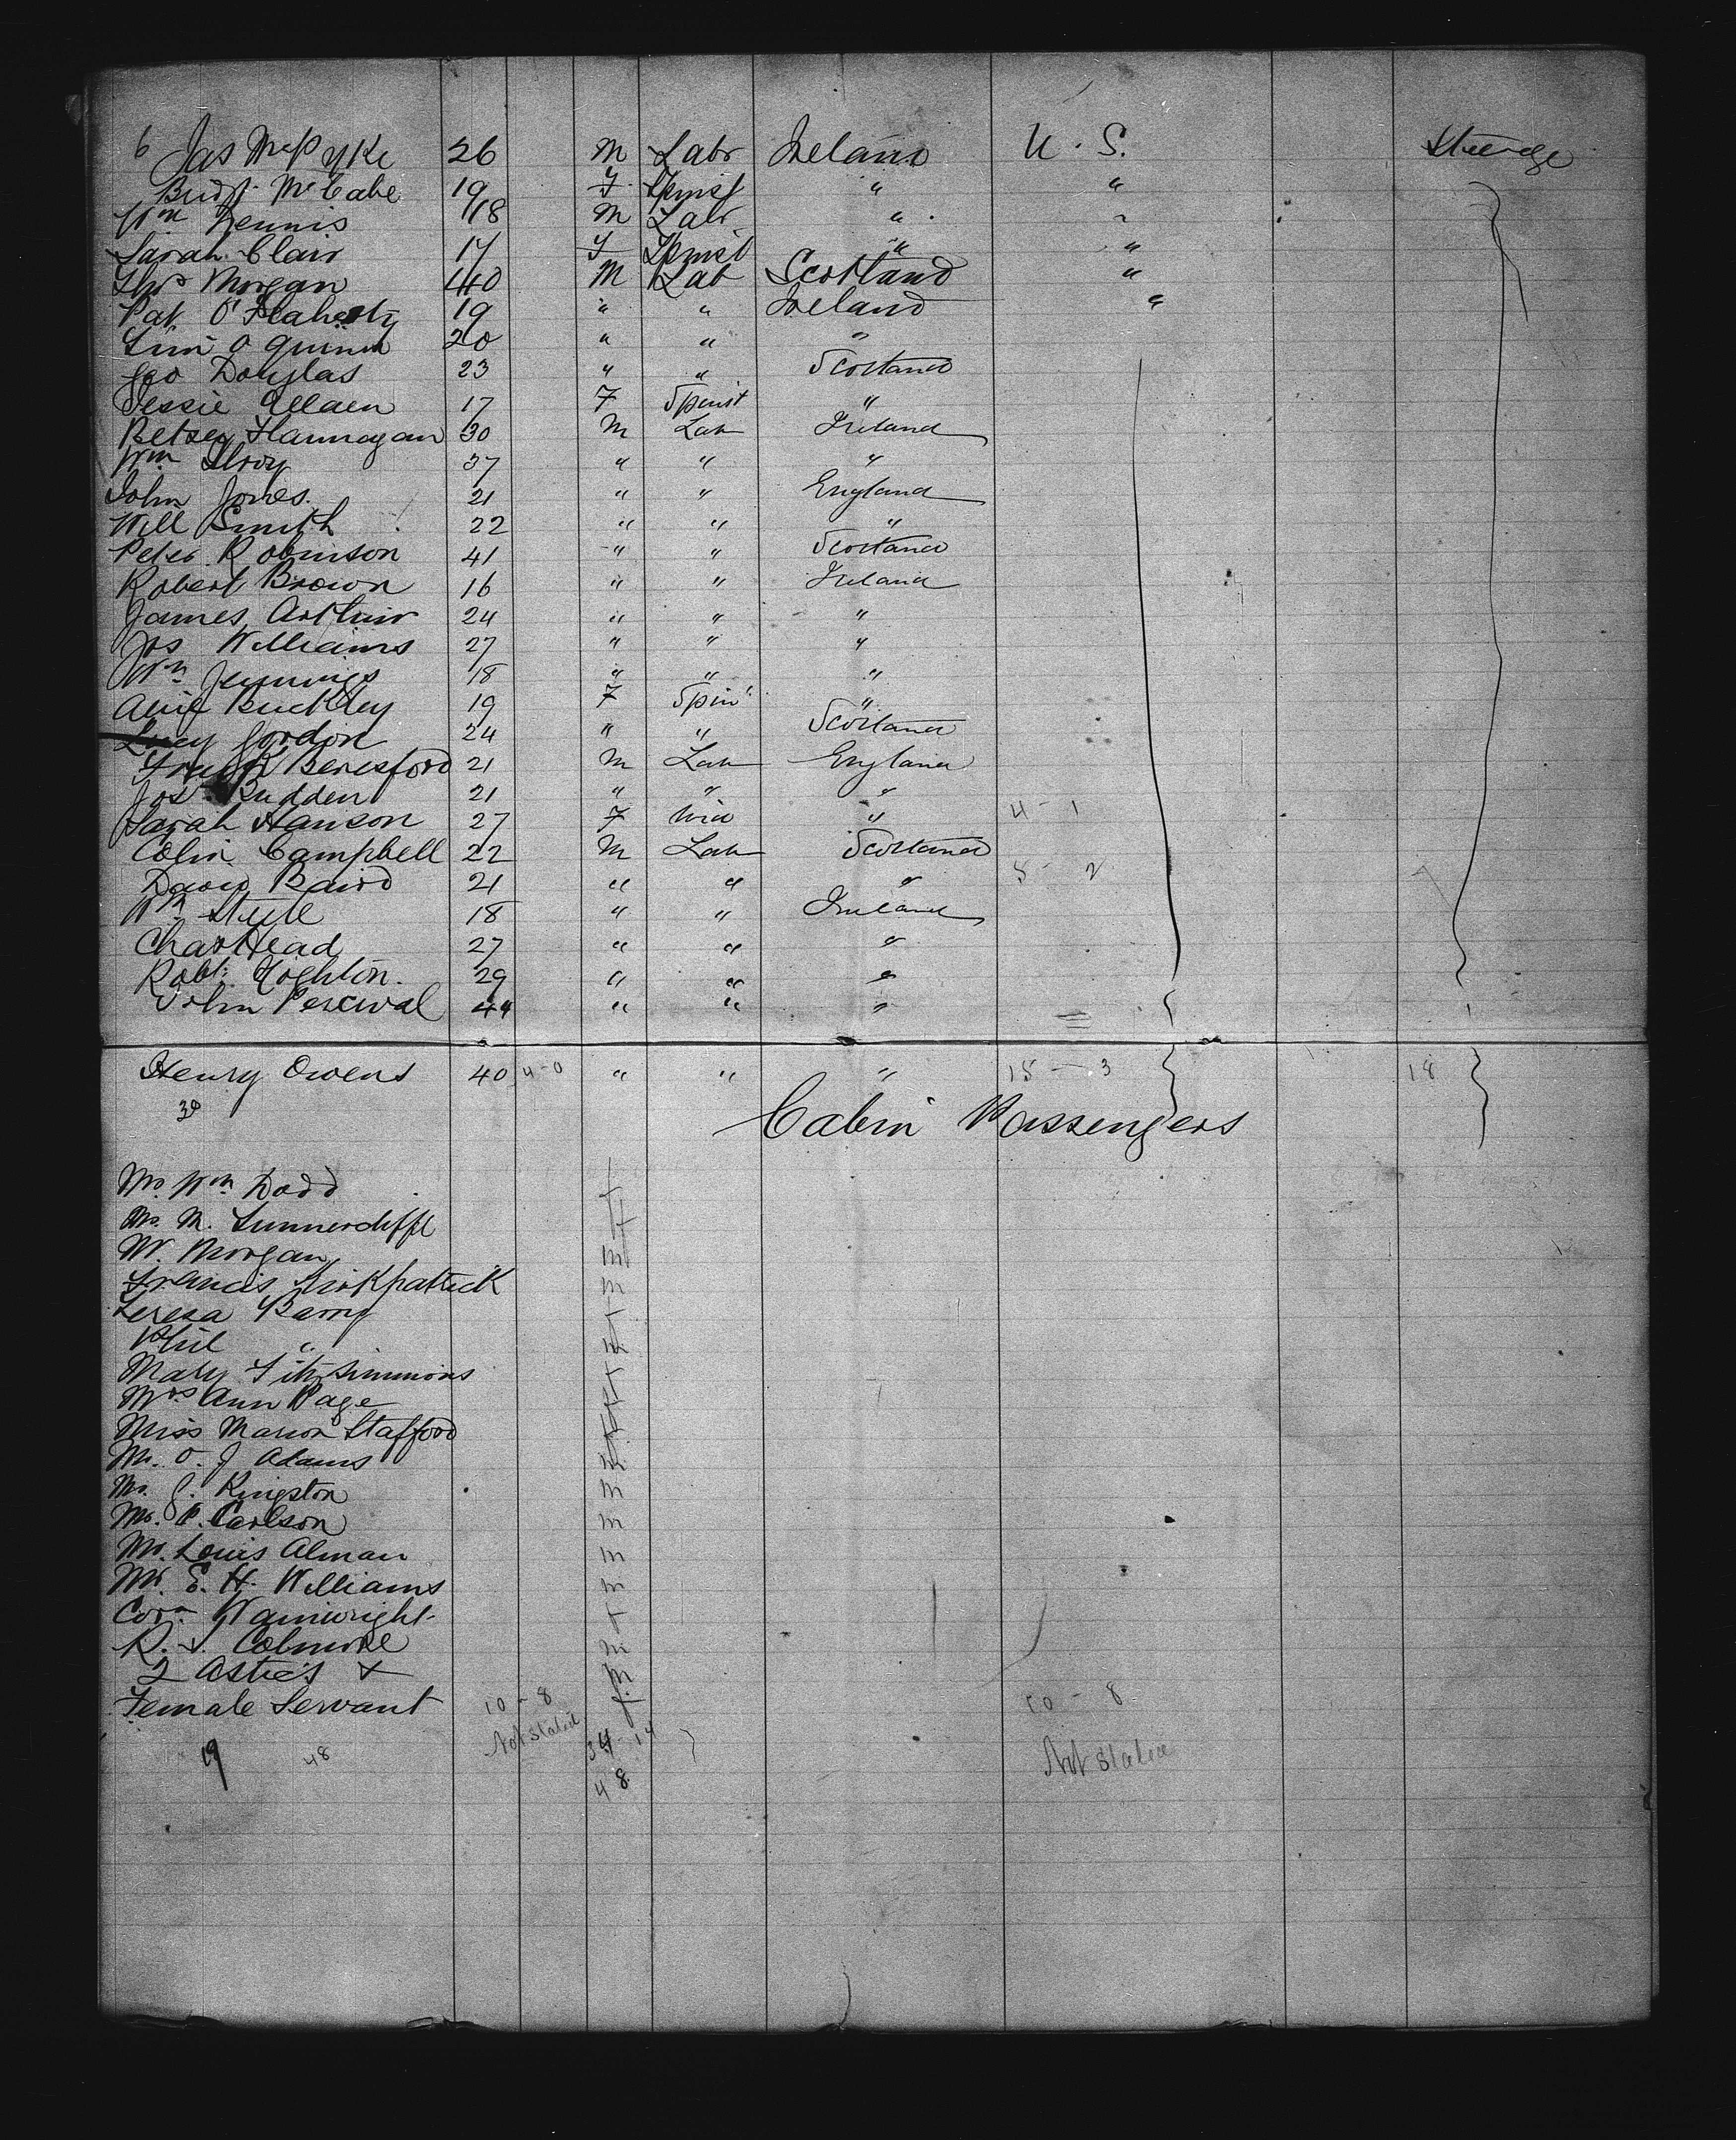 6 Jas McPyke 26 M Labr Ireland U. S. Steerage
Bridt. McCabe 19 F Spinst " "
Wm Dennis 18 M Labr " "
Sarah Clair 17 F Spinst " "
Thos Morgan 40 M Lab Scotland "
Pat O'Flaherty 19 " " Ireland "
Tim O Quinn 20 " " "
Geo Douglas 23 " " Scotland
Jessie 17 F Spinst "
Betsey Flannagan 30 M Lab Ireland
Wm Ilroy 37 " " "
John Jones. 21 " " England
Will Smith 22 " " "
Peter Robinson 41 " " Scotland
Robert Brown 16 " " Ireland
James Arthur 24 " " "
Jos Williams 27 " " "
Wm Jennings 18 " " "
Buckley 19 F Spin "
Lucy Gordon 24 " " Scotland
Frank Beresford 21 M Lab England
Jos Rudden 21 " " "
Sarah Hanson 27 F Wid " 4 - 1
Colin Campbell 22 M Lab Scotland
David Baird 21 " " " 5 - 2
Wm Steele 18 " " Ireland
Chas Head 27 " " "
Robt. Foghlin. 29 " " "
John Percival 44 " " "
Henry Owens 40 4-0 " " " 15 - 3 18
30
Cabin Passengers
Mr. Wm Dodd
M. Sunnercliffe
W. Morgan M
Francis Kirkpatrick M
Teresa Barry F
Phil "
Mary Fitzsimmons
Mrs Ann Page
Miss Marion Stafford
Mr. O. J Adams
Mr. J. Kingston M
Mr. P. Carlson M
Mr. Louis Alman M
Mr. E. H. Williams M
Cora Wainwright F
R. J. Colmore M
2 Astie's &
Female Servant 10 - 8 10 - 8
19 48 Not Stated 34 14 Not Stated
48